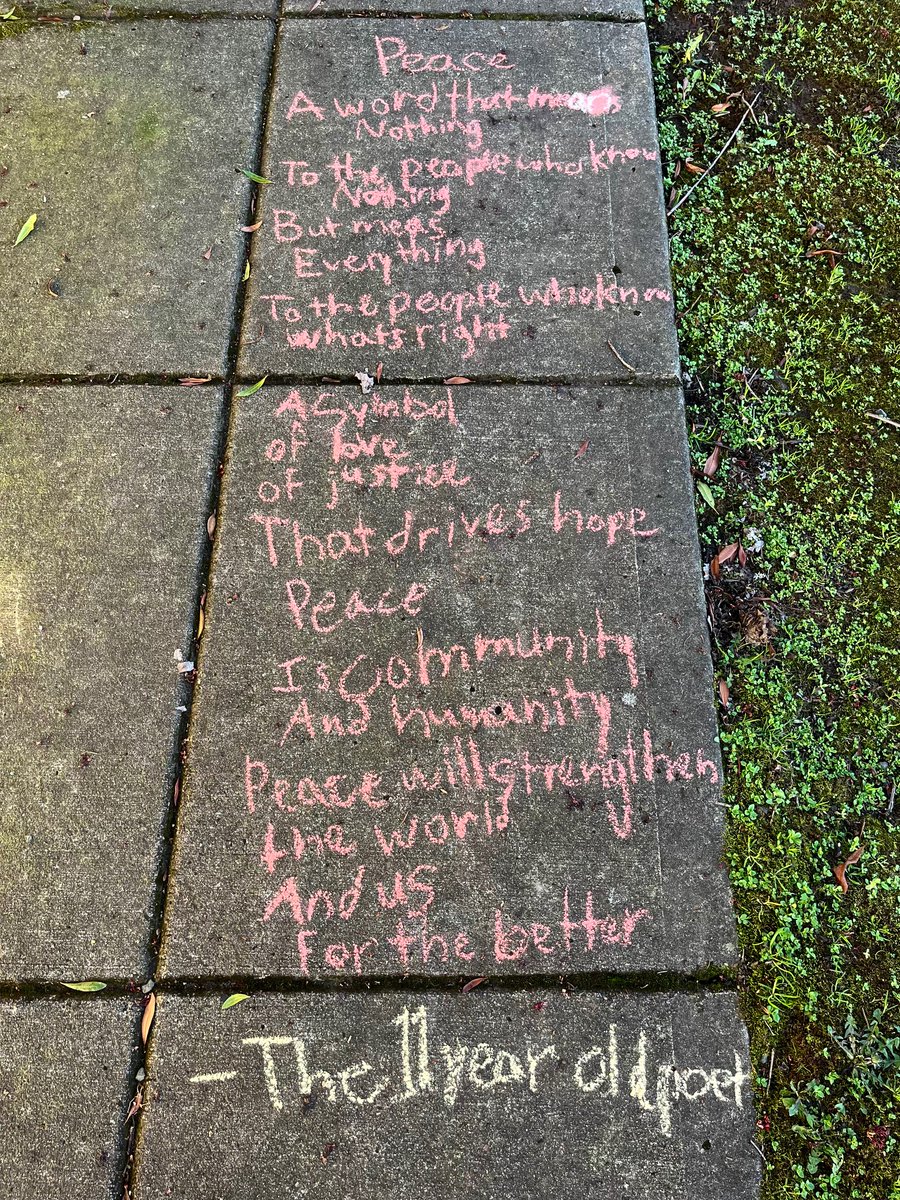 Peace
A word that means
Nothing
To the people who know
Nothing
But meas
Everything
To the people who know
whats right
A Symbol
of love
of justice
That drives hope
Peace
Is community
And humanity
Peace will strengthen
the world
And us
For the better
- The 11 year old poet